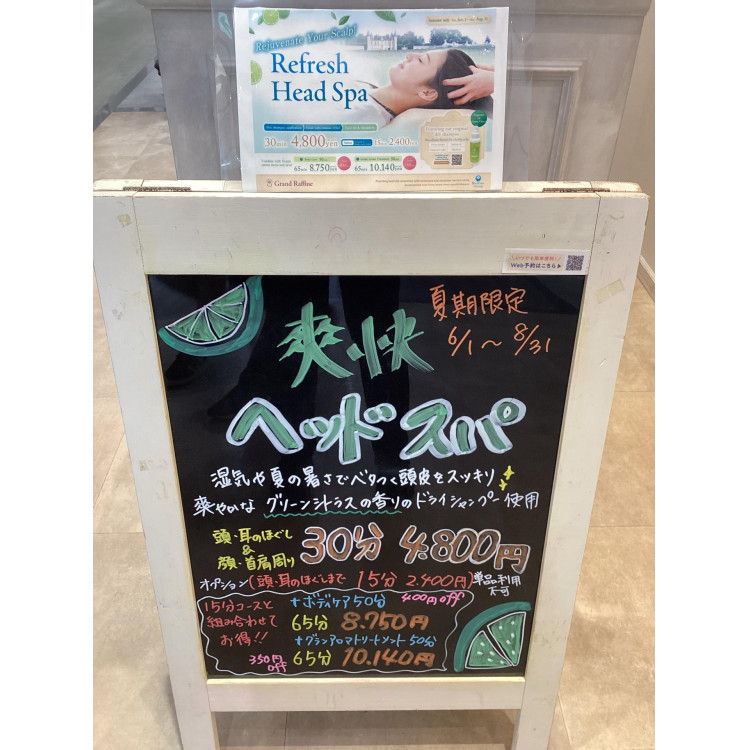 Rejuvenate Your Scalp!
Refresh
Head Spa
30min 4,800yen
15min 2,400yen
65min 8,750yen
65min 10,140yen
Grand Raffine
いつでも簡単便利!
Web予約はこちら▶
夏期限定
6/1〜8/31
爽快
ヘッドスパ
湿気や夏の暑さでベタつく頭皮をスッキリ
爽やかな グリーンシトラスの香りのドライシャンプー使用
頭・耳のほぐし
&
顔・首肩周り
30分 4.800円
オプション(頭・耳のほぐしまで 15分 2.400円)単品利用不可
15分コースと
組み合わせて
お得!!
+ボディケア50分 400円off
65分 8.750円
+グランアロマトリートメント50分
350円off 65分 10.140円